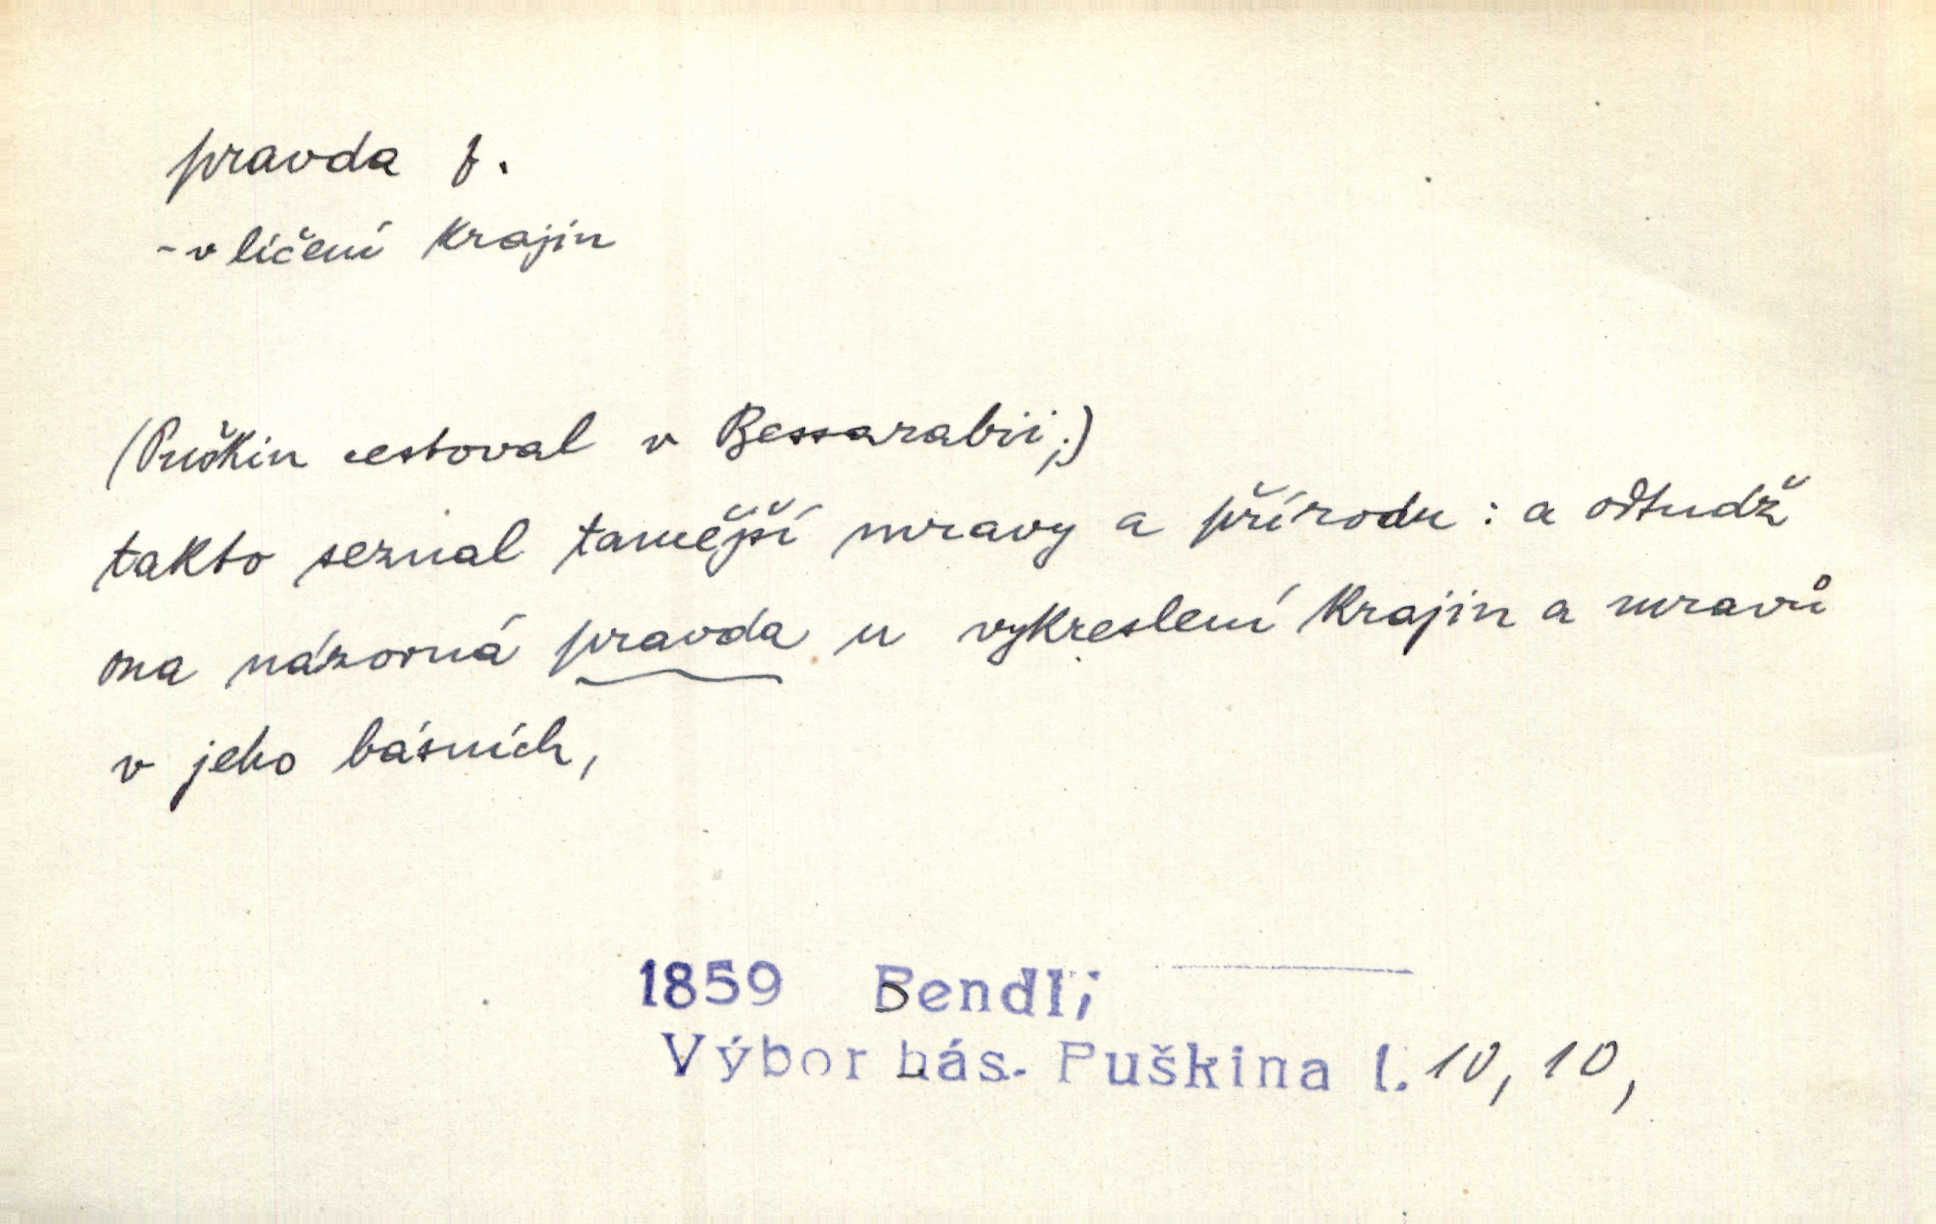 pravda f.
- v líčení krajin
(Puškin cestoval v Bessarabii;)
takto seznal tamější mravy a přírodu: a odtudž
ona názorná pravda u vykreslení krajin a mravů
v jeho básních,
1859 Bendl;
Výbor bás. Puškina I. 10, 10,